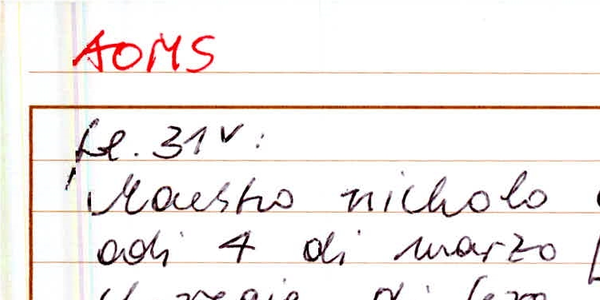 AOMS
fol. 31v:
Maestro nicholo
adi 4 di marzo
di